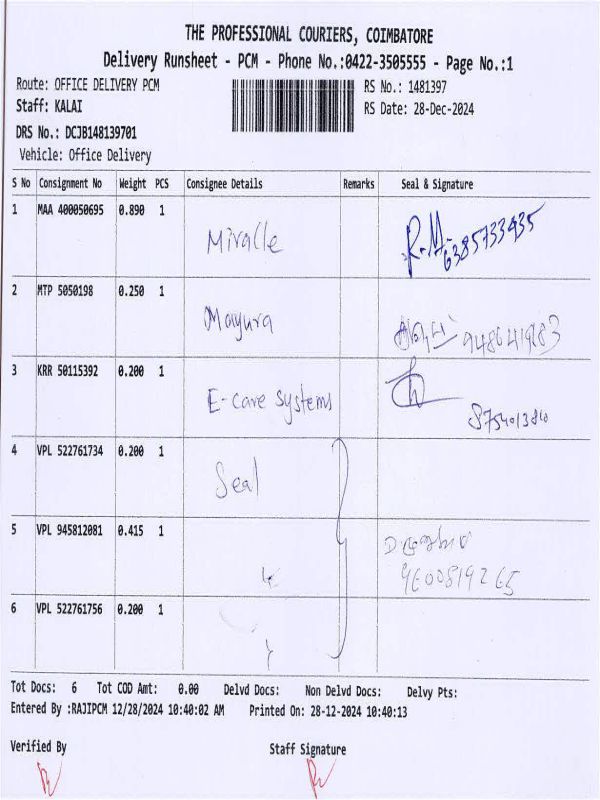 THE PROFESSIONAL COURIERS, COIMBATORE
Delivery Runsheet - PCM - Phone No.:0422-3505555 - Page No.:1
Route: OFFICE DELIVERY PCM
RS No.: 1481397
Staff: KALAI
RS Date: 28-Dec-2024
DRS No.: DCJB148139701
Vehicle: Office Delivery
S No Consignment No Weight PCS Consignee Details Remarks Seal & Signature
1 MAA 400050695 0.890 1
Miralle R.M. 6385733435
2 MTP 5050198 0.250 1
Mayura 9486419283
3 KRR 50115392 0.200 1
E-care systems
4 VPL 522761734 0.200 1
Seal
5 VPL 945812081 0.415 1
9600819265
6 VPL 522761756 0.200 1
Tot Docs: 6 Tot COD Amt: 0.00 Delvd Docs: Non Delvd Docs: Delvy Pts:
Entered By :RAJIPCM 12/28/2024 10:40:02 AM Printed On: 28-12-2024 10:40:13
Verified By Staff Signature